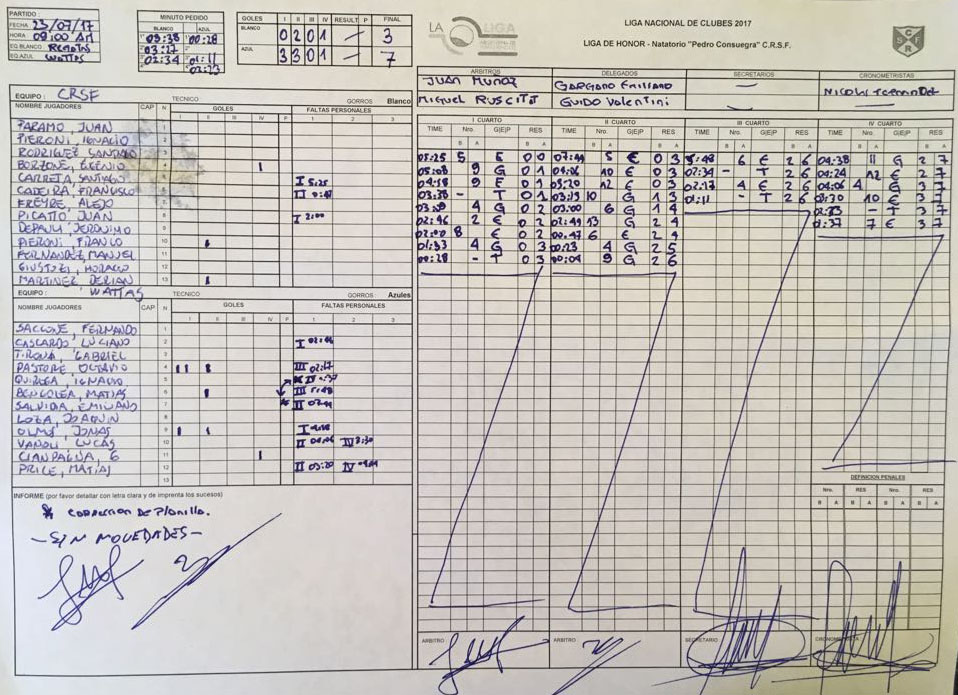 PARTIDO :
FECHA 23/07/17
HORA 09:00 AM
EQ.BLANCO
EQ.AZUL WATTAS
MINUTO PEDIDO
BLANCO AZUL
03:38 00:28
03:27
02:34 01:11
02:23
GOLES I II III IV RESULT P FINAL
BLANCO 0 2 0 1 — 3
AZUL 3 3 0 1 — 7
LA LIGA
LIGA NACIONAL DE CLUBES 2017
LIGA DE HONOR - Natatorio "Pedro Consuegra" C.R.S.F.
ARBITROS DELEGADOS SECRETARIOS CRONOMETRISTAS
JUAN MUÑOZ
GUIDO Valentini
EQUIPO : CRSF TECNICO GORROS Blanco
NOMBRE JUGADORES CAP N GOLES FALTAS PERSONALES
I II III IV P 1 2 3
PARAMO, JUAN 1
PIERONI, IGNACIO 2
RODRIGUEZ 3
4
CARRETA, SANTIAGO I 5:25
CADEIRA, FRANCISCO II
FREYRE, ALEJO
PICATTO JUAN I 2:00
DEPAULI, JERONIMO 9
PIERONI, FRANCO 10
FERNANDEZ, MANUEL 11
HORACIO 12
MARTINEZ 13
EQUIPO : WATTAS TECNICO GORROS Azules
NOMBRE JUGADORES CAP N GOLES FALTAS PERSONALES
I II III IV P 1 2 3
SACCONE, FERNANDO
CASCARDO, LUCIANO 2 I 02:46
GABRIEL
PASTORE, OCTAVIO 4 III 02:17
QUIROGA, IGNACIO
BENGOLEA, MATIAS 6 III 5:48
SALVIDIA, EMILIANO 7 II
LOZA, JOAQUIN
OLMO, JONAS 9 I 4:18
VANOLI, LUCAS 10 II 04:06 IV 3:30
CIANPAGNA, G 11
PRICE, MATIAS 12 II 03:20 IV
13
INFORME (por favor detallar con letra clara y de imprenta los sucesos)
* CORRECCION DE PLANILLA.
- SIN NOVEDADES -
I CUARTO II CUARTO III CUARTO IV CUARTO
TIME Nro. G|E|P RES TIME Nro. G|E|P RES TIME Nro. G|E|P RES TIME Nro. G|E|P RES
B A B A B A B A B A B A B A B A
05:25 5 E 0 0 07:44 5 E 0 3 5:48 6 E 2 6 04:38 11 G 2 7
05:08 9 G 0 1 04:06 10 E 0 3 02:34 - T 2 6 04:24 12 E 2 7
04:18 9 E 0 1 03:20 12 E 0 3 02:17 4 E 2 6 04:06 4 G 3 7
03:38 - T 0 1 03:13 10 G 1 3 01:11 - T 2 6 03:30 10 E 3 7
03:09 4 G 0 2 03:00 6 G 1 4 02:23 - T 3 7
02:46 2 E 0 2 02:49 13 G 2 4 01:37 7 E 3 7
02:00 8 E 0 2 00:47 6 E 2 4
01:33 4 G 0 3 00:23 4 G 2 5
00:28 - T 0 3 00:04 9 G 2 6
DEFINICION PENALES
Nro. RES Nro. RES
B A B A B A B A
ARBITRO ARBITRO SECRETARIO CRONOMETRISTA